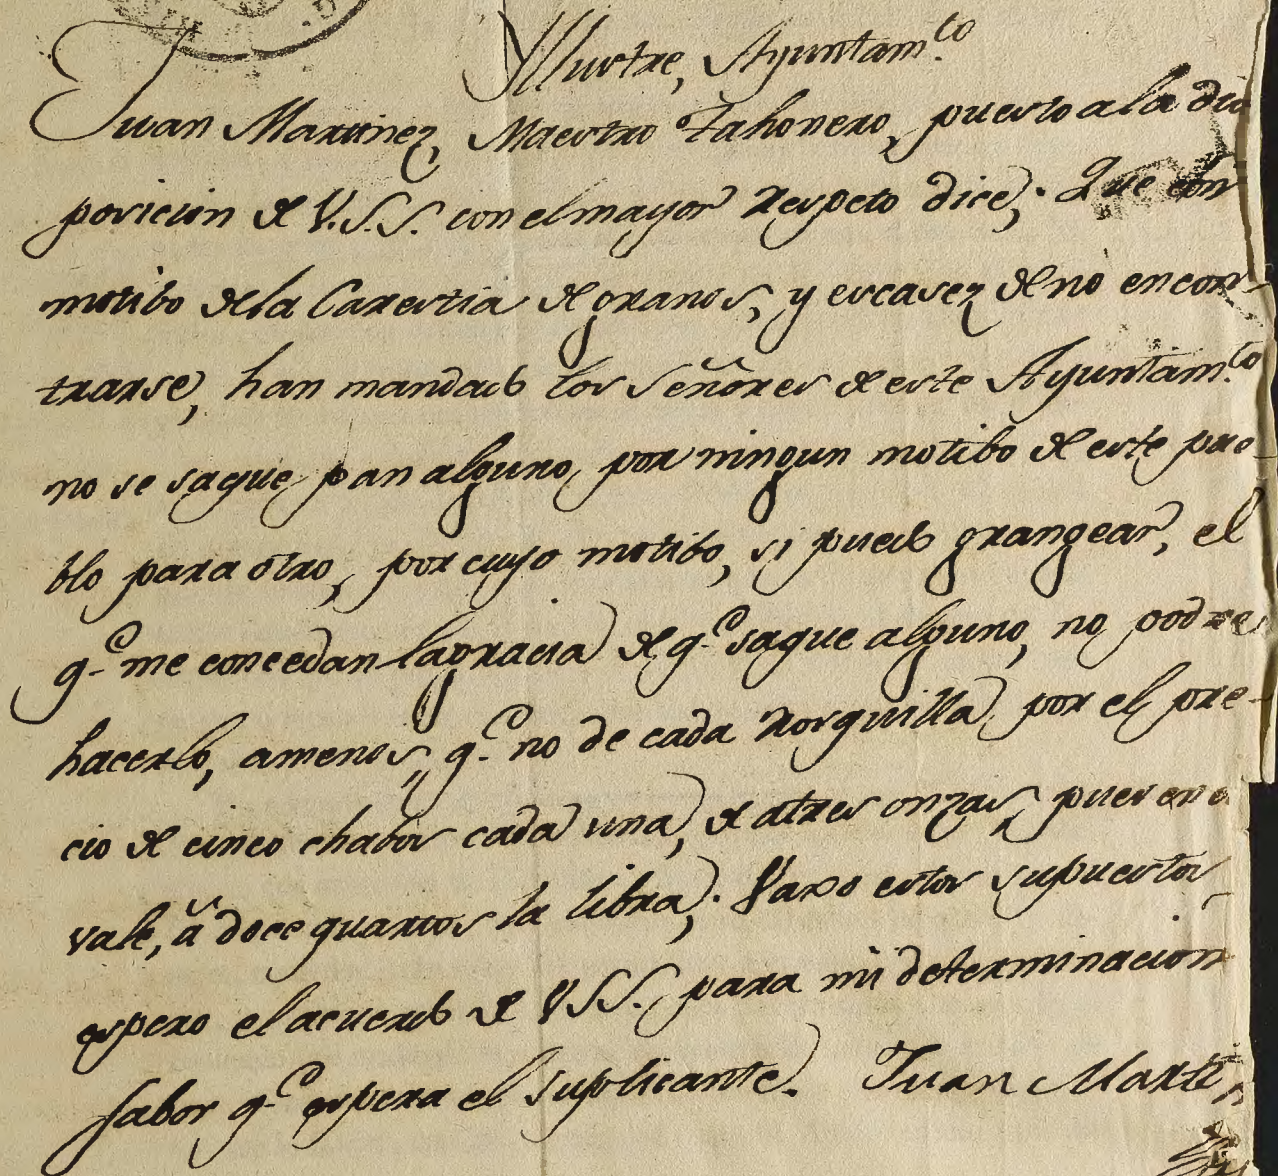 Yllustre, Ayuntam.to
Juan Martinez, Maestro Tahonero, puesto a la dis
posicion de V.S.S. con el mayor respeto dice; Que con
motibo de la Carestia de granos, y escasez de no encon-
trarse, han mandado los Señores de este Ayuntam.to
no se saque pan alguno, por ningun motibo de este pue-
blo para otro, por cuyo motibo, si puedo grangear, el
q.e me concedan la gracia de q.e saque alguno, no podre
hacerlo, amenos, q.e no de cada rosquilla por el pre-
cio de cinco chabos cada una, de a tres onzas, pues en
vale, á doce quartos la libra; Vaxo estos supuestos,
espero el acuerdo de VSS. para mi determinacion
fabor q.e espera el suplicante. Juan Martin